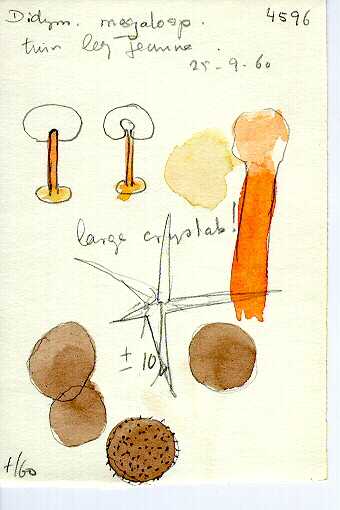 Didym. megalosp. 4596
tuin leg Jeanne.
25-9-60
large crystals!
± 10
+/60